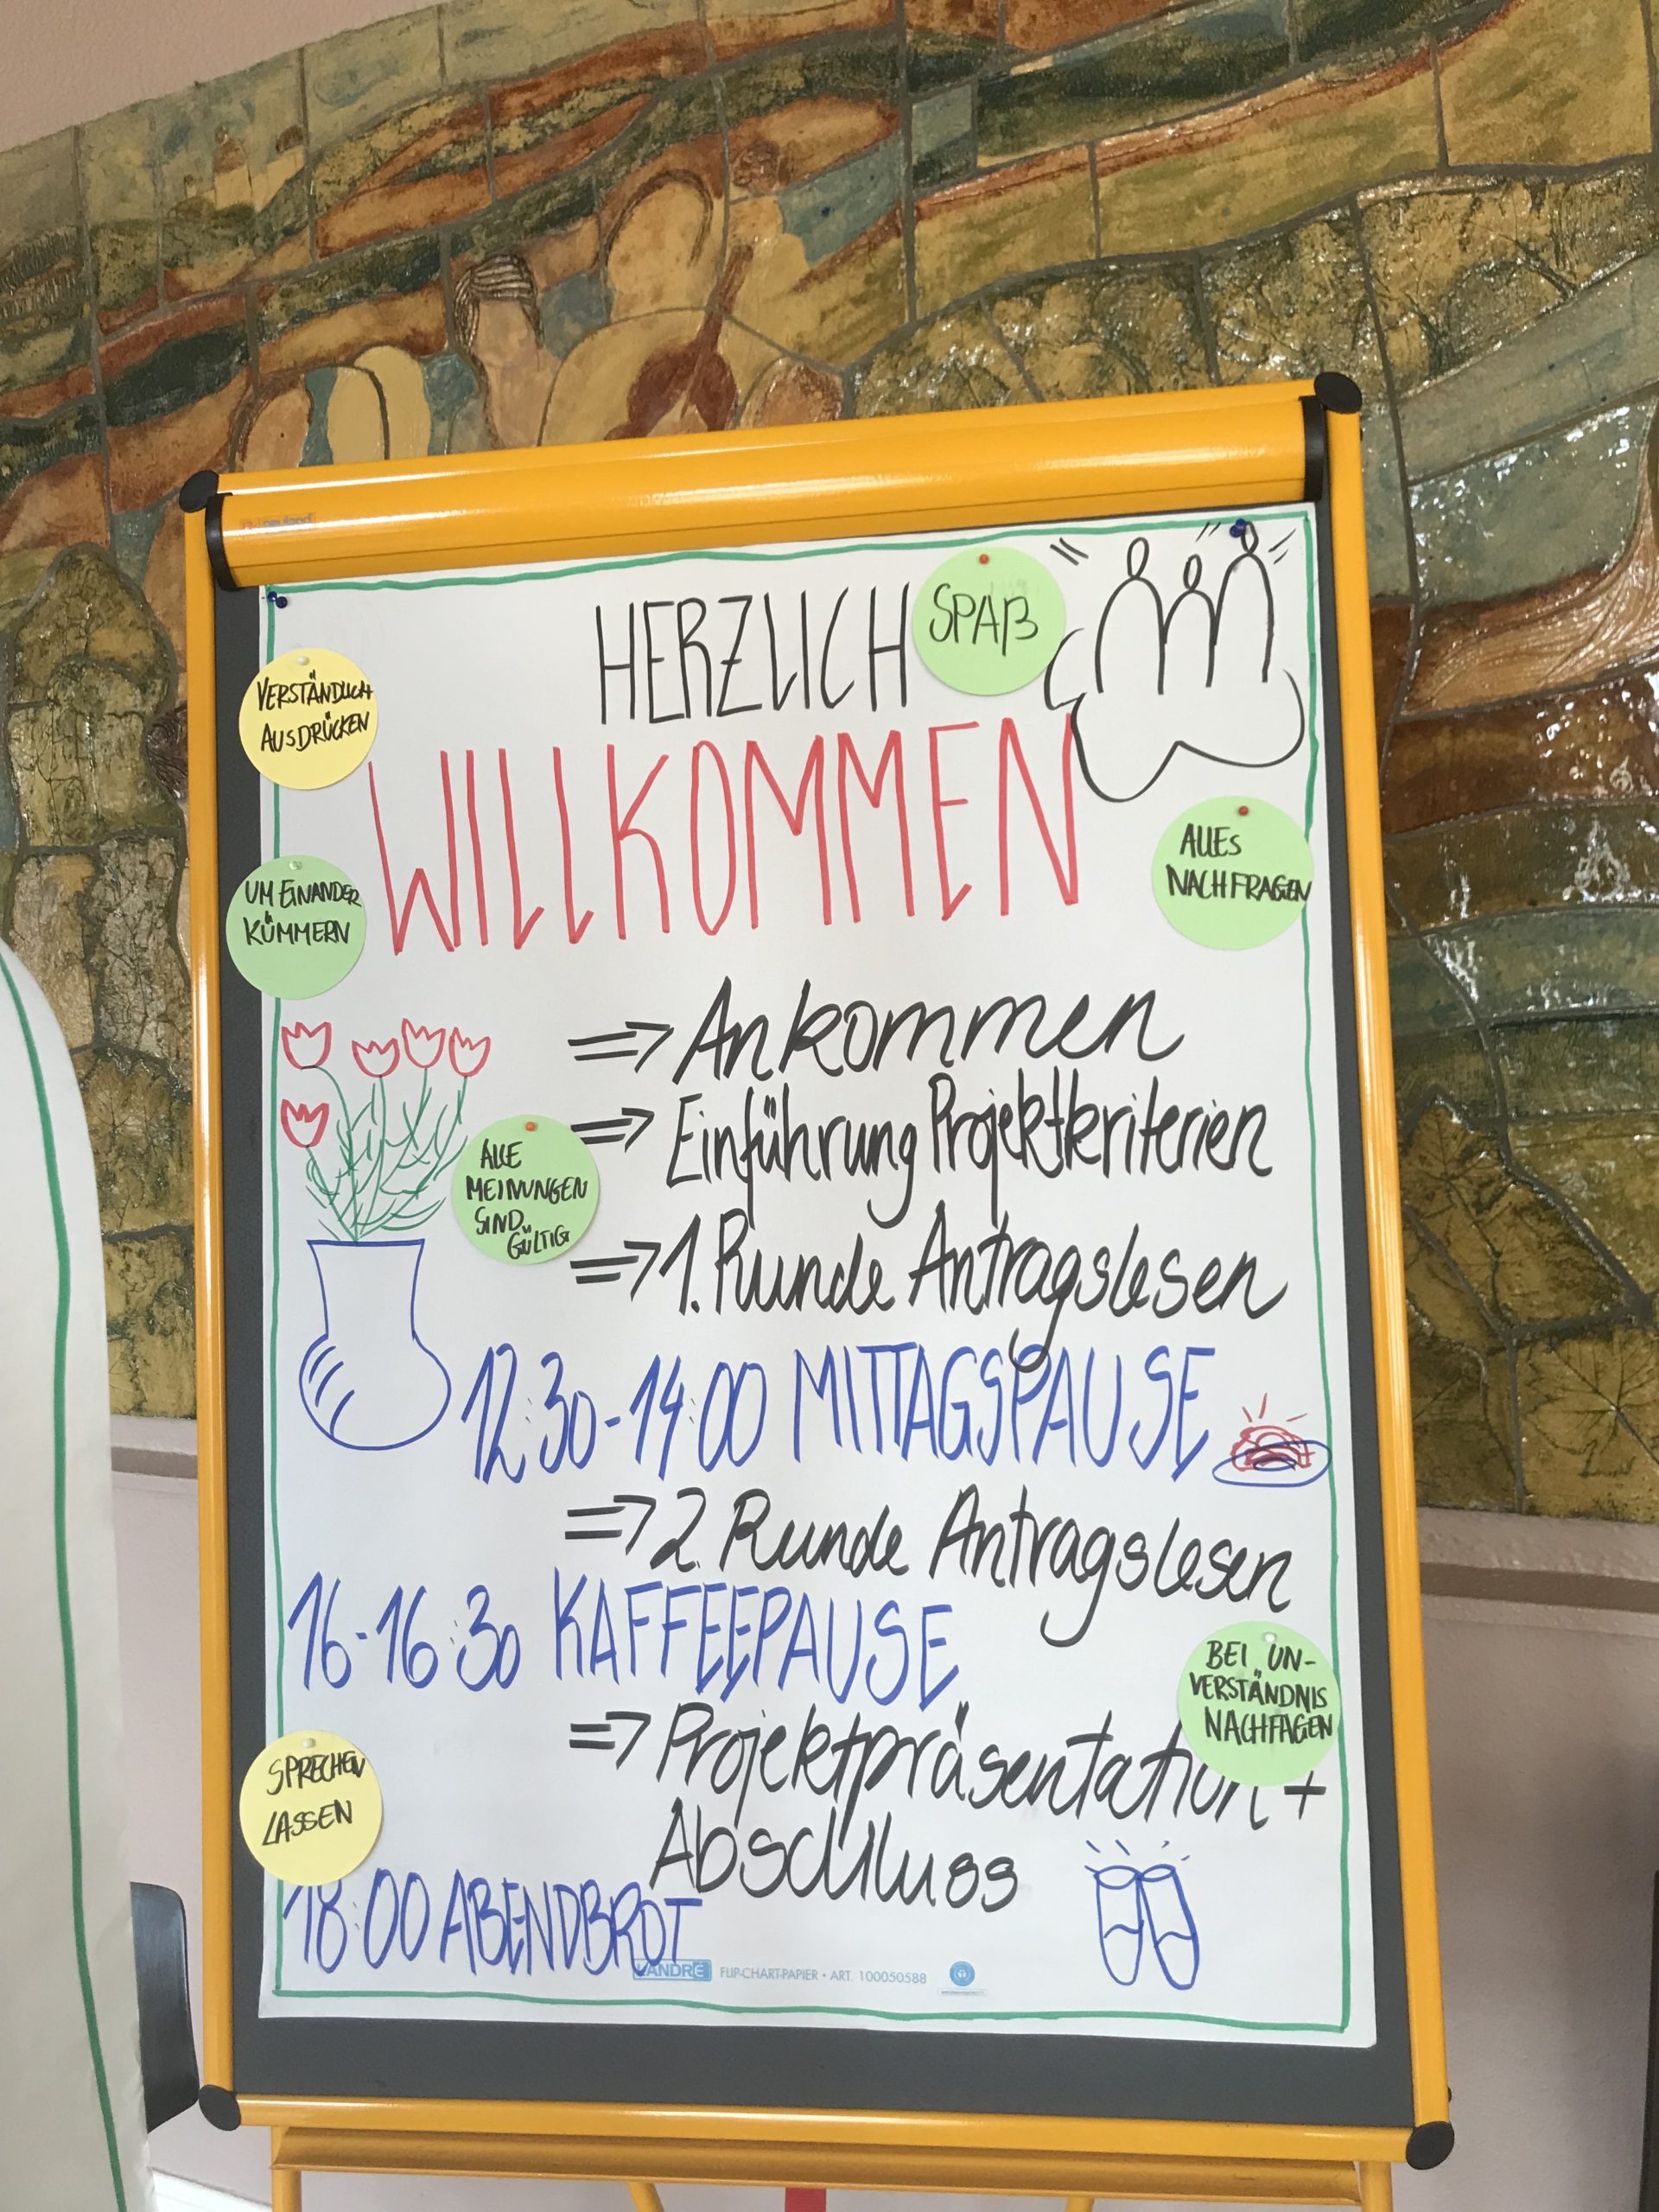 HERZLICH
SPAß
VERSTÄNDLICH
AUSDRÜCKEN
WILLKOMMEN
ALLES
NACHFRAGEN
UM EINANDER
KÜMMERN
=> Ankommen
=> Einführung Projektkriterien
ALLE
MEINUNGEN
SIND
GÜLTIG
=> 1. Runde Antragslesen
12:30-14:00 MITTAGSPAUSE
=> 2. Runde Antragslesen
16-16:30 KAFFEEPAUSE
BEI UN-
VERSTÄNDNIS
NACHFAGEN
=> Projektpräsentation +
Abschluss
SPRECHEN
LASSEN
18:00 ABENDBROT
LANDRÉ FLIP-CHART-PAPIER • ART. 100050588